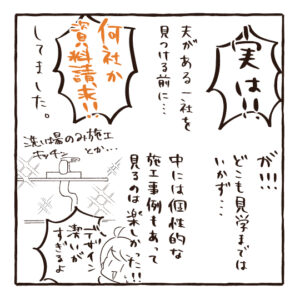 実は!!
夫がある一社を
見つける前に…
何社か
資料請求!!
してました。
が!!!
どこも見学までは
いかず…
中には個性的な
施工事例もあって
見るのは楽しかった!!
洗い場のみ施工
キッチン
とか…
デザイン
潔いが
すぎるよ